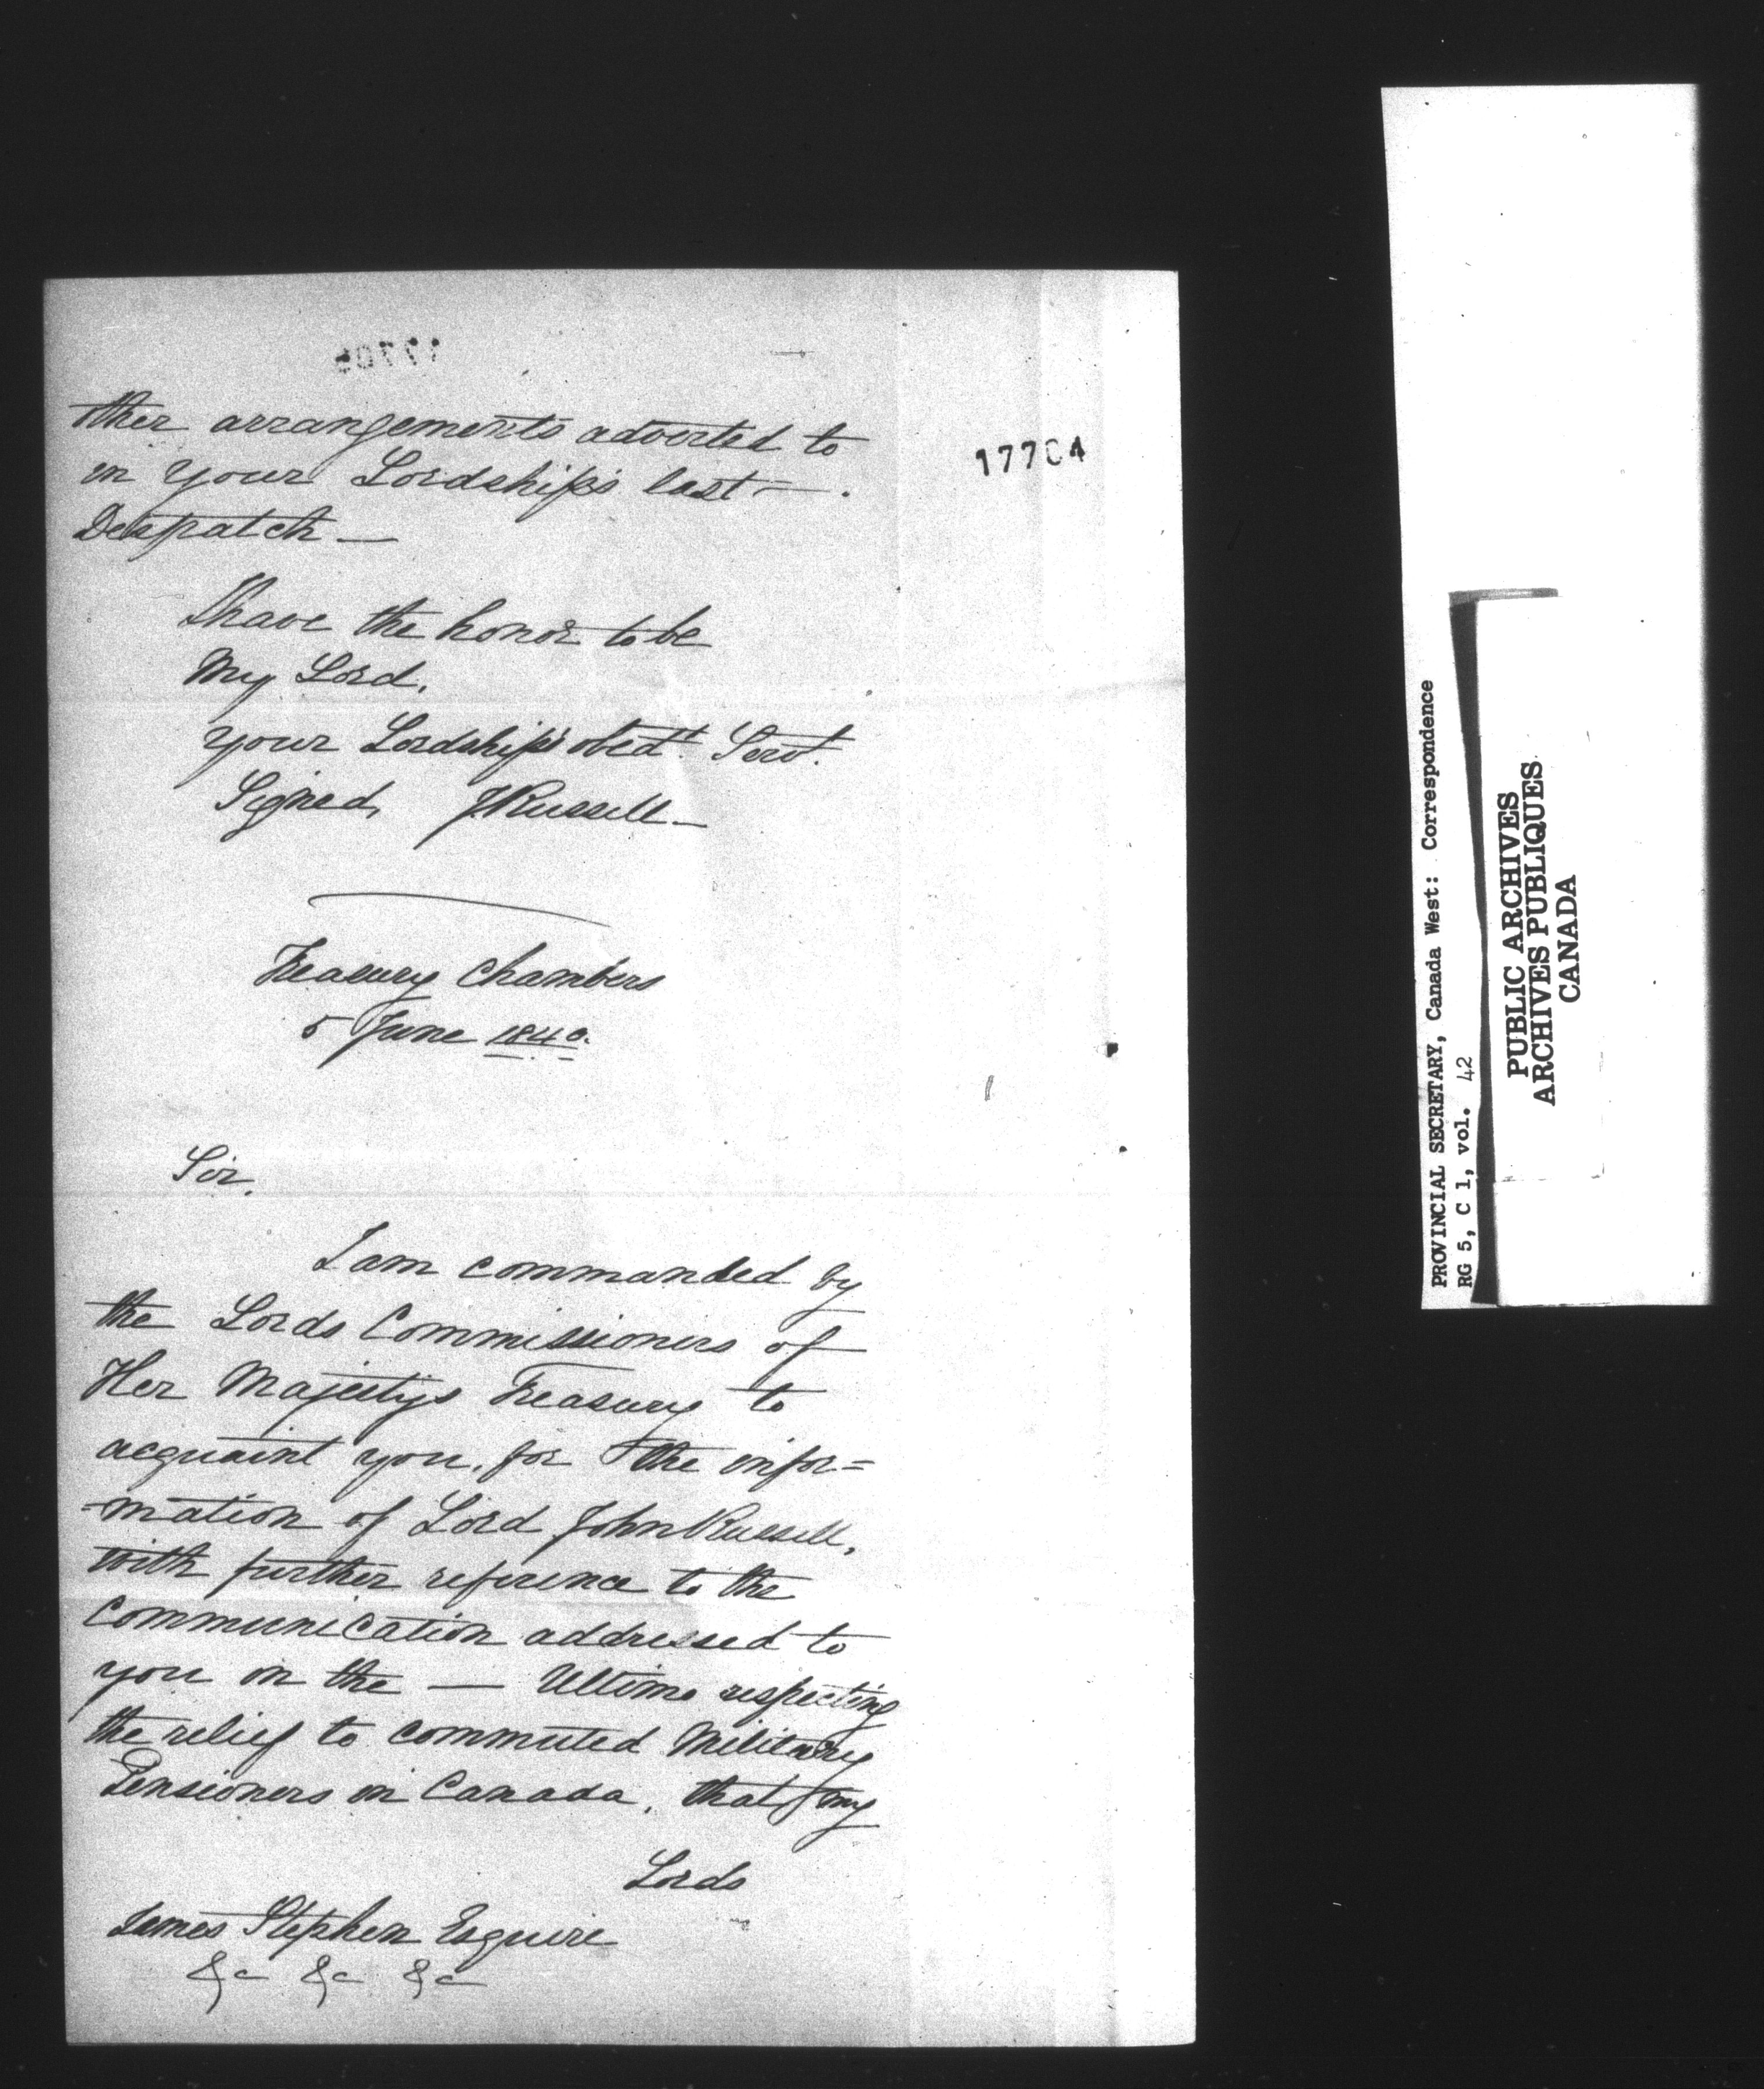 17704
ther arrangements adverted to
in your Lordship's last — .
Despatch —
I have the honor to be
My Lord,
your Lordship's obedt. Servt.
Signed, J. Russell —
Treasury Chambers
5 June 1840.
Sir,
I am commanded by
the Lords Commissioners of
Her Majesty's Treasury to
acquaint you, for the infor=
=mation of Lord John Russell,
with further reference to the
communication addressed to
you on the — Ultimo respecting
the relief to commuted Military
Pensioners in Canada, that my
Lords
James Stephen Esquire
&c &c &c
PROVINCIAL SECRETARY, Canada West: Correspondence
RG 5, C 1, vol. 42
PUBLIC ARCHIVES
ARCHIVES PUBLIQUES
CANADA